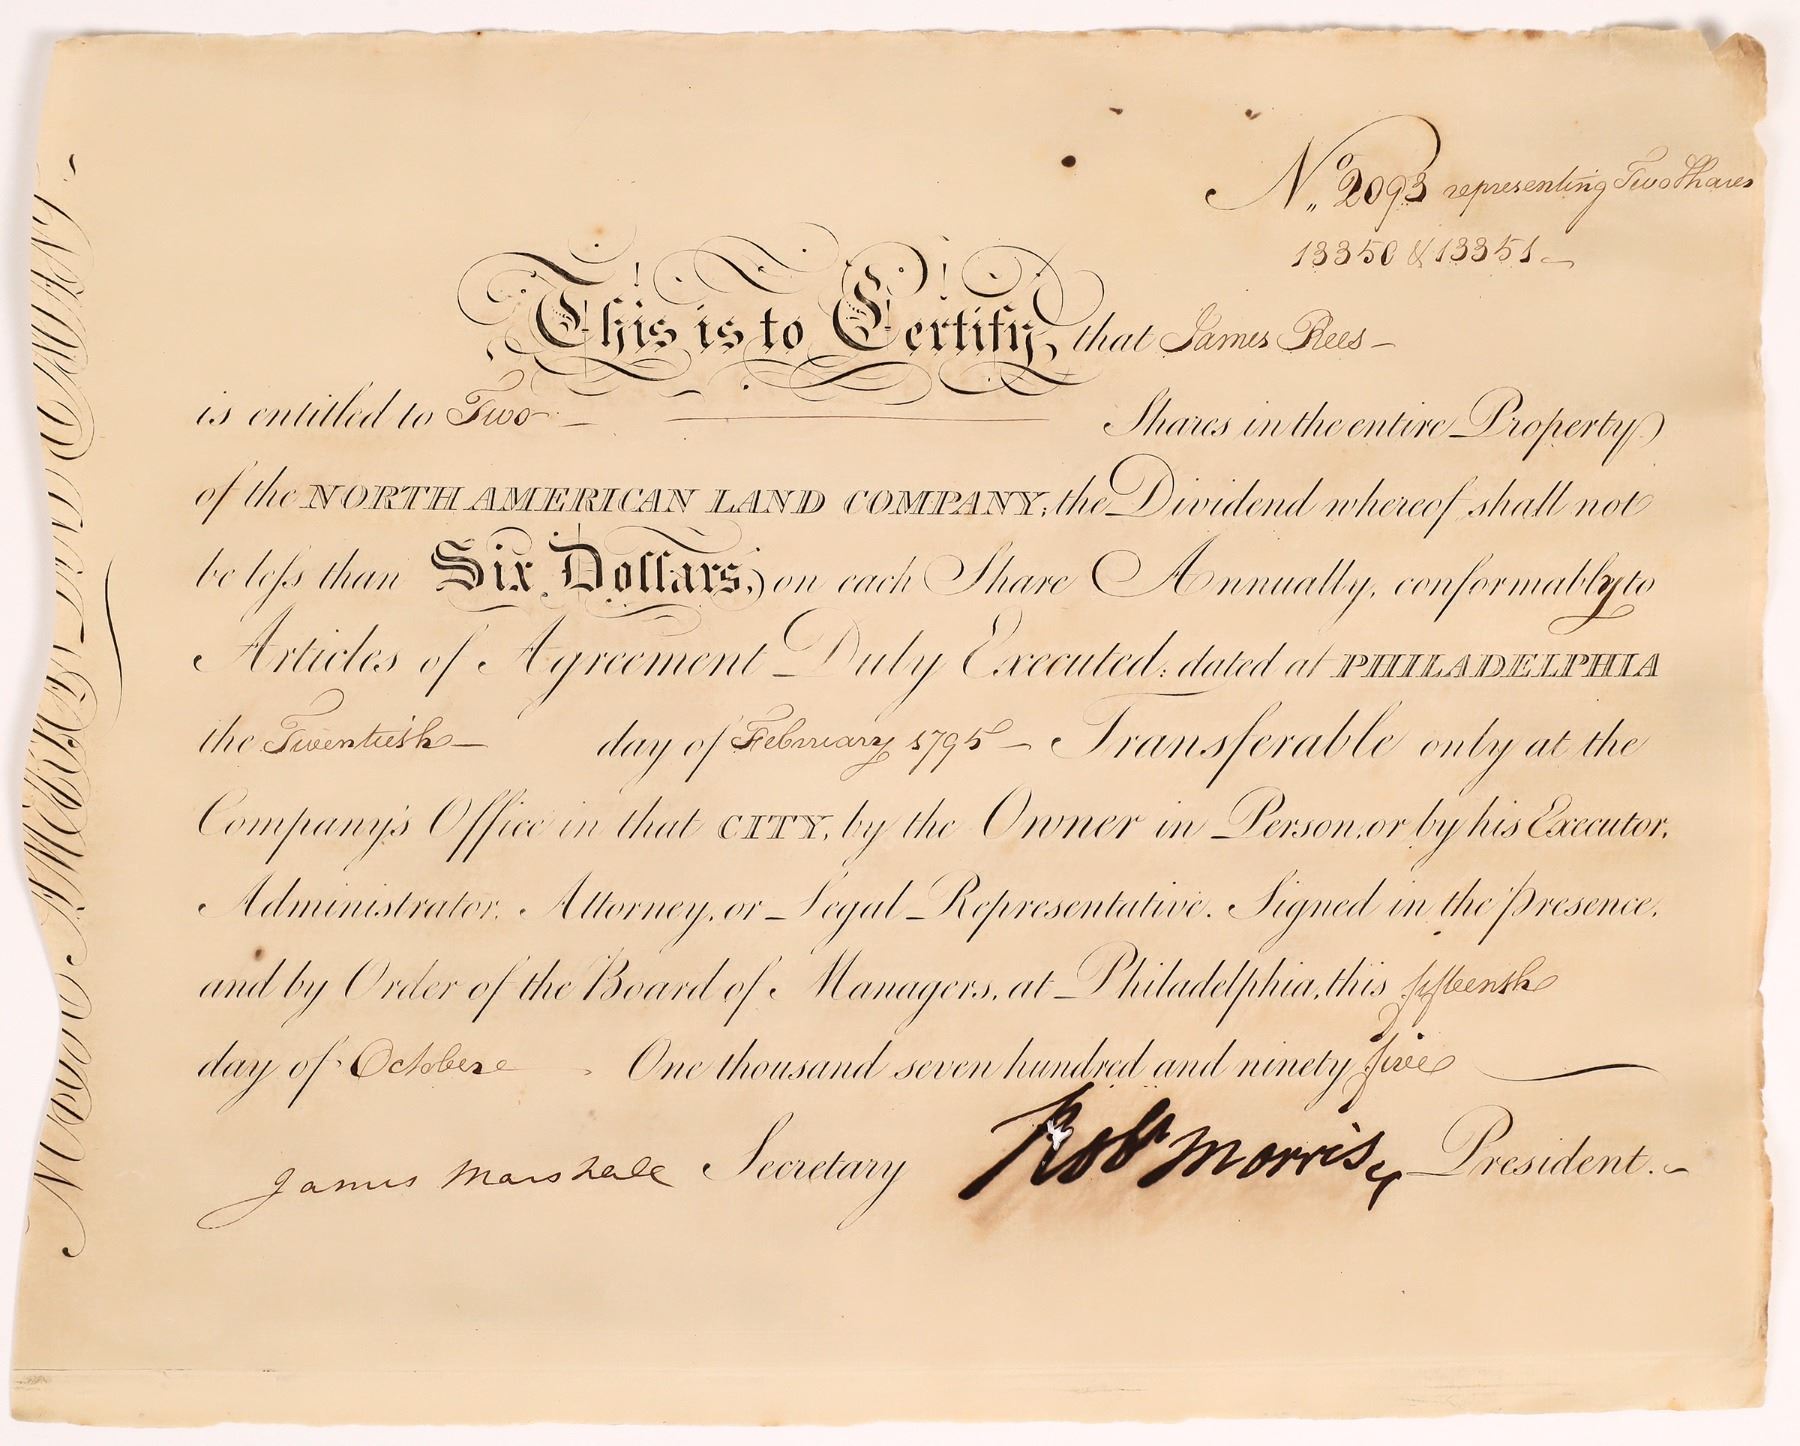 No 2093 representing Two Shares
13350 & 13351
This is to Certify, that James Rees
is entitled to Two Shares in the entire Property
of the NORTH AMERICAN LAND COMPANY; the Dividend whereof shall not
be less than Six Dollars, on each Share Annually, conformably to
Articles of Agreement Duly Executed; dated at PHILADELPHIA
the Twentieth day of February 1795 Transferable only at the
Company's Office in that CITY, by the Owner in Person, or by his Executor,
Administrator, Attorney, or Legal Representative. Signed in the presence,
and by Order of the Board of Managers, at Philadelphia, this fifteenth
day of October One thousand seven hundred and ninety five
James Marshall Secretary Robt Morris President.
NORTH AMERICAN LAND COMPANY